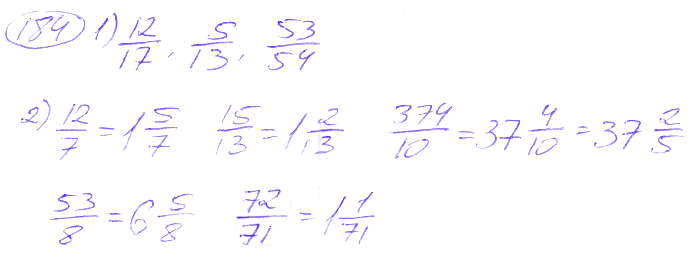 184 1) 12/17, 5/13, 53/54
2) 12/7 = 1 5/7 15/13 = 1 2/13 374/10 = 37 4/10 = 37 2/5
53/8 = 6 5/8 72/71 = 1 1/71